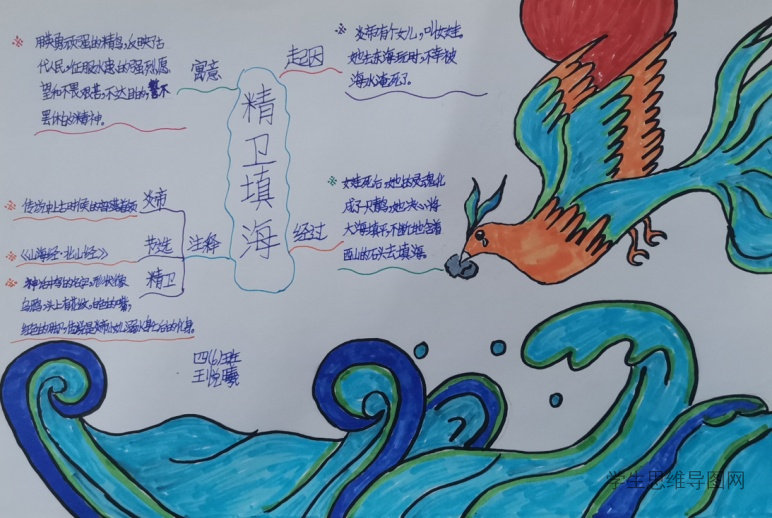 精卫填海
起因
炎帝有个女儿,叫女娃。
她去东海玩时,不幸被
海水淹死了。
经过
女娃死后,她的灵魂化
成了一只鸟,她决心将
大海填平,不断地含着
西山的石头去填海。
寓意
用英勇顽强的精鸟,反映了古
代人民,征服水患的强烈愿
望和不畏艰苦,不达目的,誓不
罢休的精神。
注释
炎帝
传说中上古时候的部落首领
《山海经·北山经》
精卫
神话中鸟的名字,形状像
乌鸦,头上有花纹,白色的嘴,
四(6)班
王悦曦
学生思维导图网